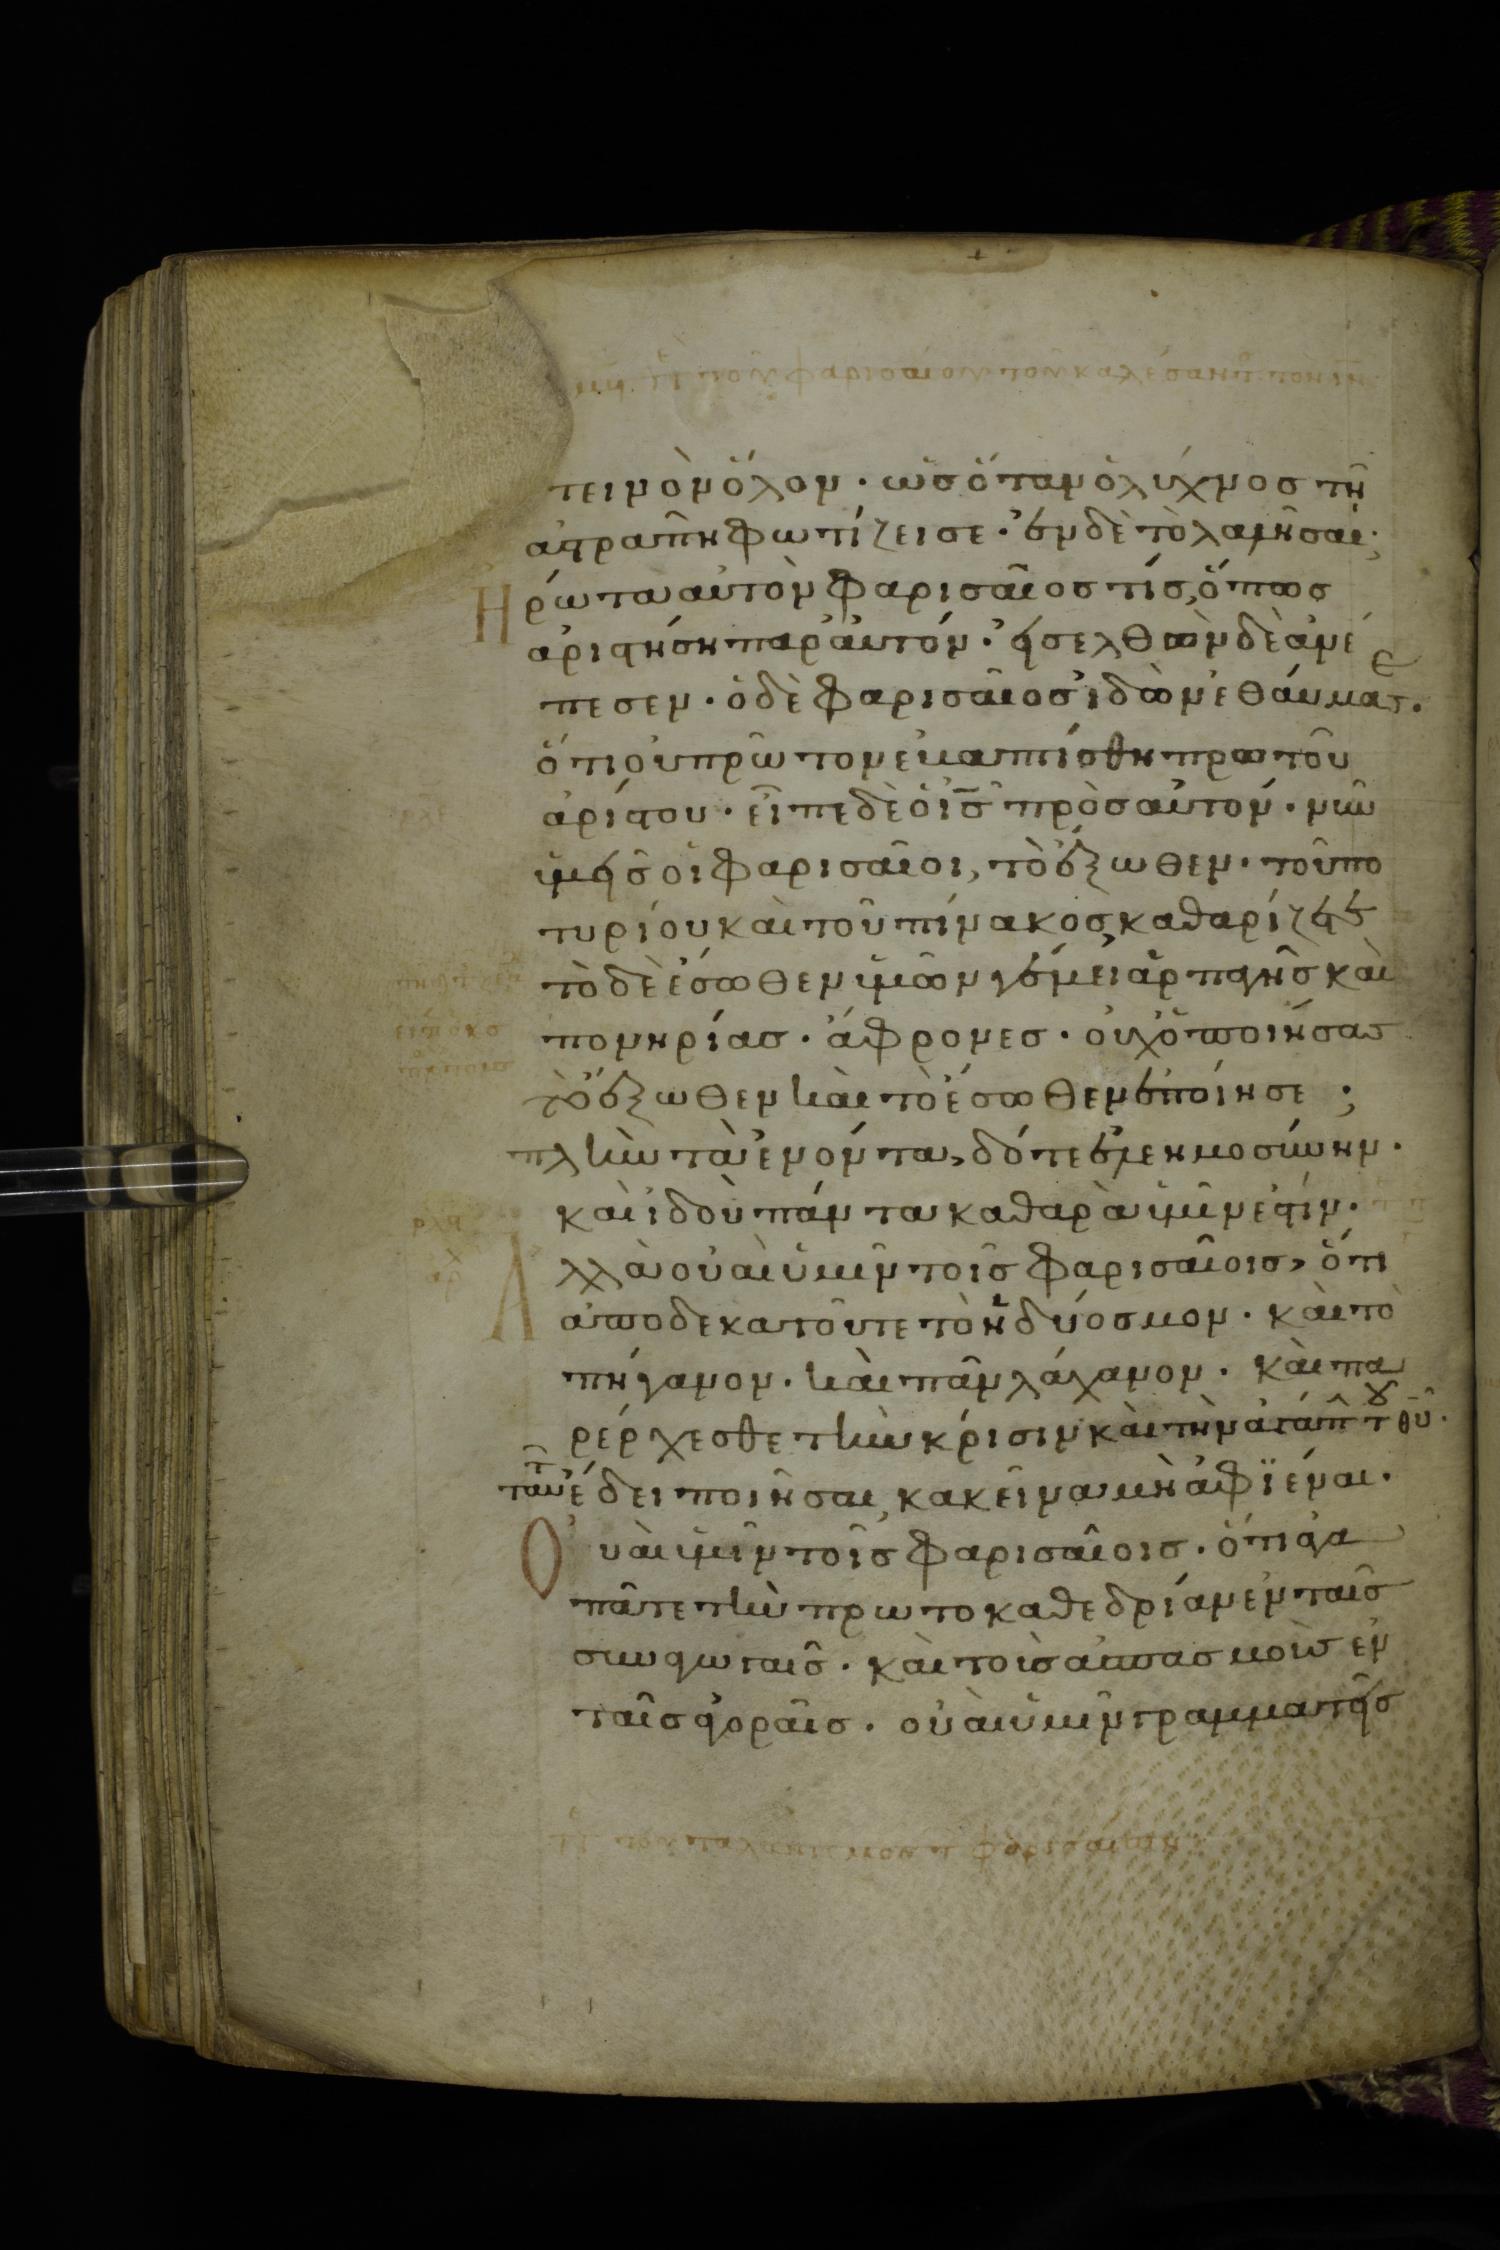 τεινὸν ὅλον · ὡς ὅταν ὁ λύχνος τῆ
ἀστραπῆ φωτίζει σε · ἐν δὲ τὸ λαλῆσαι·
Ἠρώτα αὐτὸν φαρισαῖος τίς, ὅπως
ἀριστήση παρ' αὐτόν · εἰσελθὼν δὲ ἀνέ
πεσεν · ὁ δὲ φαρισαῖος ἰδὼν ἐθαύμασ.
ὅτι οὐ πρῶτον ἐβαπτίσθη πρὼ τοῦ
ἀρίστου · εἶπε δὲ ὁ ις πρὸς αὐτόν · νῦν
ὑμεῖς οἱ φαρισαῖοι, τὸ ἔξωθεν · τοῦ πο
τυρίου καὶ τοῦ πίνακος, καθαρίζετε
τὸ δὲ ἔσωθεν ὑμῶν γέμει ἁρπαγῆς καὶ
πονηρίας · ἄφρονες · οὐχ ὁ ποιήσας
τὸ ἔξωθεν καὶ τὸ ἔσωθεν ἐποίησε ;
πλὴν τὰ ἐνόντα, δότε ἐλεημοσύνην.
καὶ ἰδοὺ πάντα καθαρὰ ὑμῖν ἐστίν.
Ἀλλὰ οὐαὶ ὑμῖν τοῖς φαρισαίοις, ὅτι
ἀποδεκατοῦτε τὸ ἡδύοσμον · καὶ τὸ
πήγανον · καὶ πᾶν λάχανον · καὶ πα
ρέρχεσθε τὴν κρίσιν καὶ τὴν ἀγάπ του θυ.
ταῦτ ἔδει ποιῆσαι, κακεῖνα μὴ ἀφϊέναι.
Οὐαὶ ὑμῖν τοῖς φαρισαίοις · ὅτι ἀγα
πᾶτε τὴν πρωτοκαθεδρίαν ἐν ταῖς
συναγωγαῖς · καὶ τοὺς ἀσπασμοὺς ἐν
ταῖς ἀγοραῖς · οὐαὶ ὑμῖν γραμματεῖς